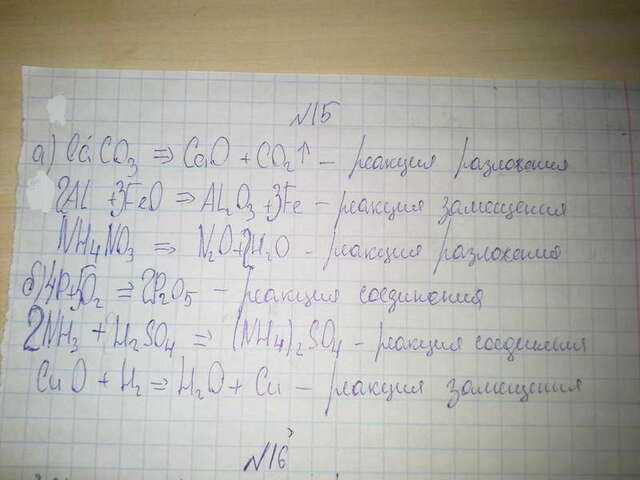 №15
а) CaCO3 ⇒ CaO + CO2↑ – реакция разложения
2Al + 3FeO ⇒ Al2O3 + 3Fe – реакция замещения
NH4NO3 ⇒ N2O + 2H2O – реакция разложения
б) 4P + 5O2 ⇒ 2P2O5 – реакция соединения
2NH3 + H2SO4 ⇒ (NH4)2SO4 – реакция соединения
CuO + H2 ⇒ H2O + Cu – реакция замещения
№16